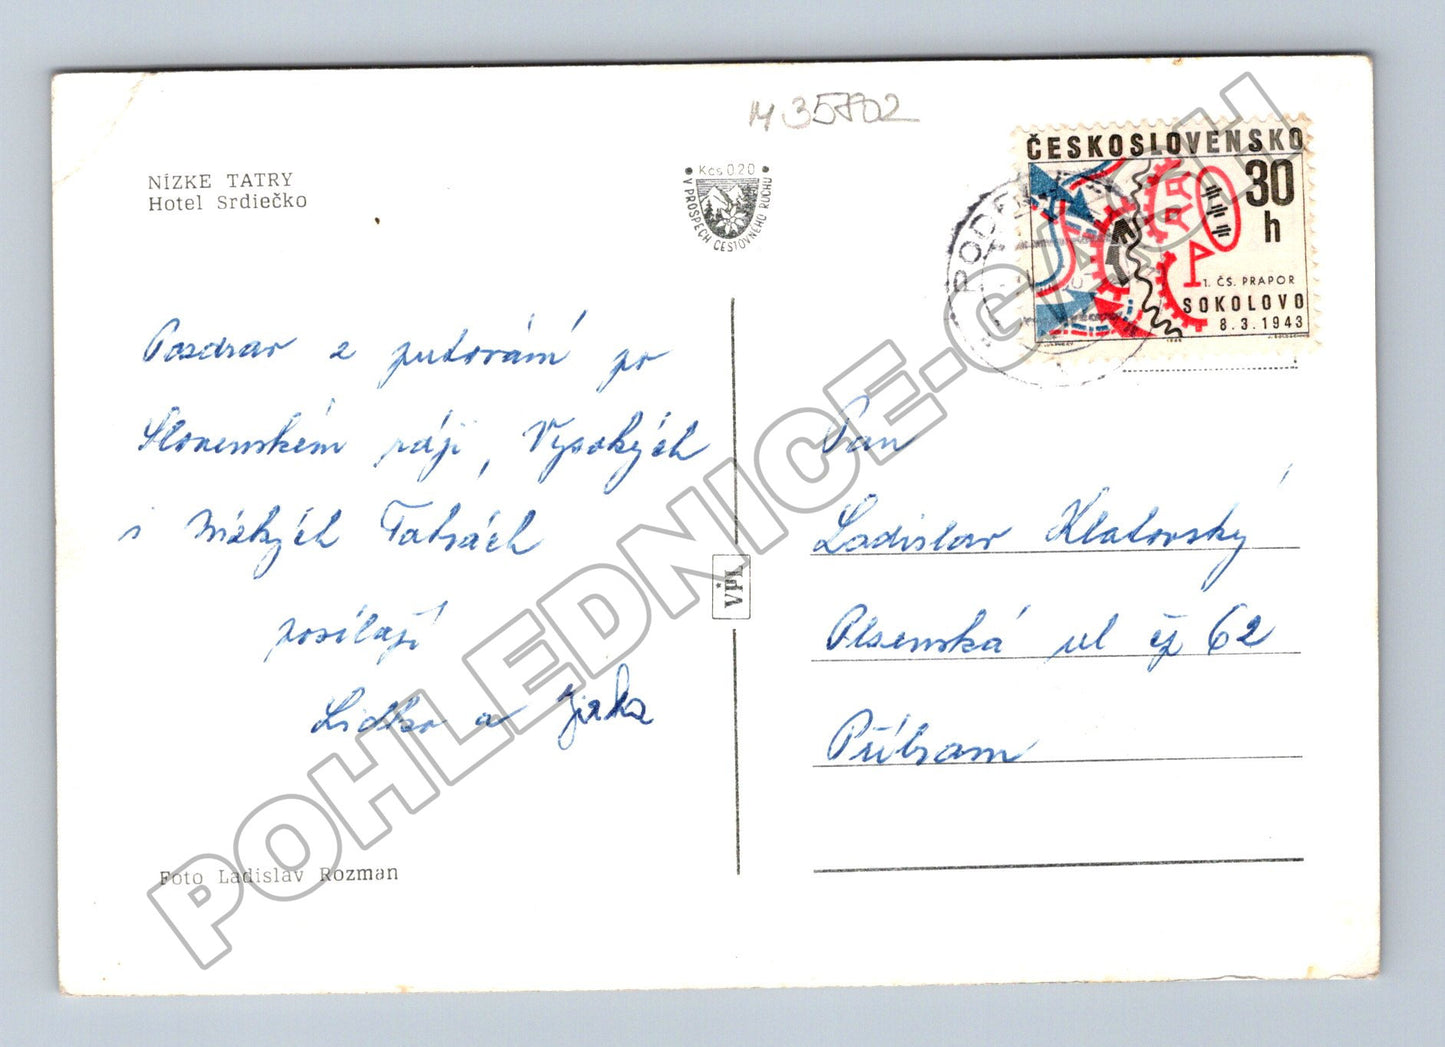 M 35802
NÍZKE TATRY
Hotel Srdiečko
Kčs 0.20
V PROSPECH CESTOVNÉHO RUCHU
ČESKOSLOVENSKO
30
h
1. ČS. PRAPOR
SOKOLOVO
8.3.1943
Pozdrav z putování po
Slovenském ráji, Vysokých
i Nízkých Tatrách
posílají
Lidka a Jirka
VPL
Pan
Ladislav Klatovský
Plzenská ul čp 62
Příbram
Foto Ladislav Rozman
POHLEDNICE-CACH